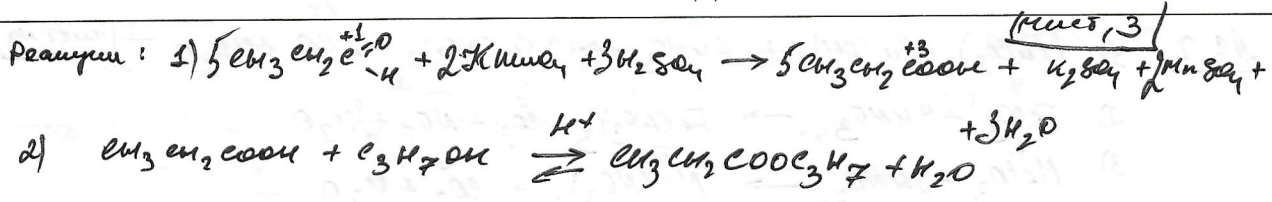 (лист, 3)
Реакции: 1) 5CH₃CH₂C⁺¹=O-H + 2KMnO₄ + 3H₂SO₄ → 5CH₃CH₂C⁺³OOH + K₂SO₄ + 2MnSO₄ +
+ 3H₂O
2) CH₃CH₂COOH + C₃H₇OH ⇌ H⁺ CH₃CH₂COOC₃H₇ + H₂O